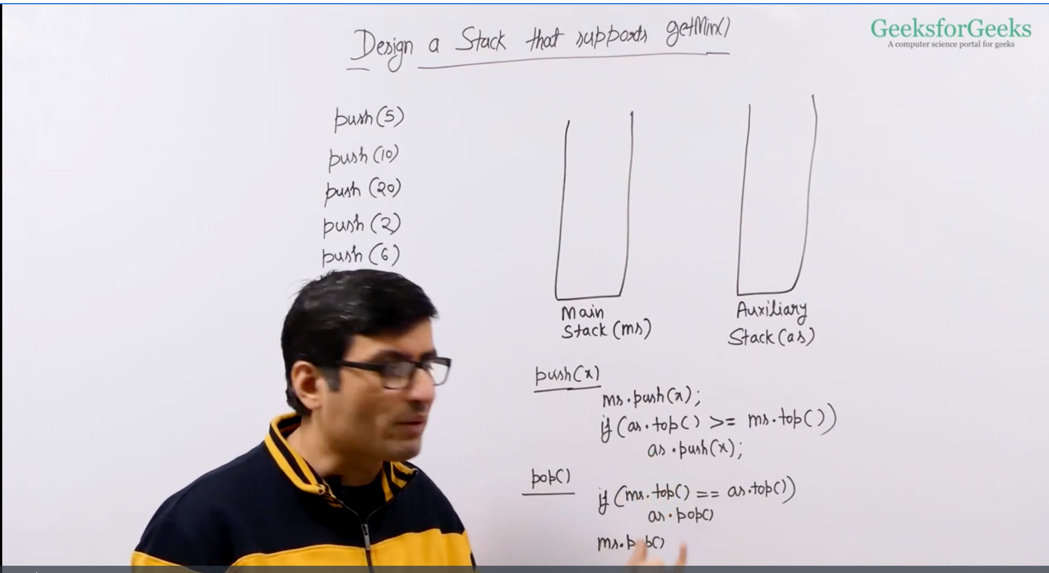 Design a Stack that supports getMin()
GeeksforGeeks
A computer science portal for geeks
push(5)
push(10)
push(20)
push(2)
push(6)
Main
Stack(ms)
Auxiliary
Stack(as)
push(x)
ms.push(x);
if(as.top() >= ms.top())
as.push(x);
pop()
if(ms.top() == as.top())
as.pop()
ms.pop()